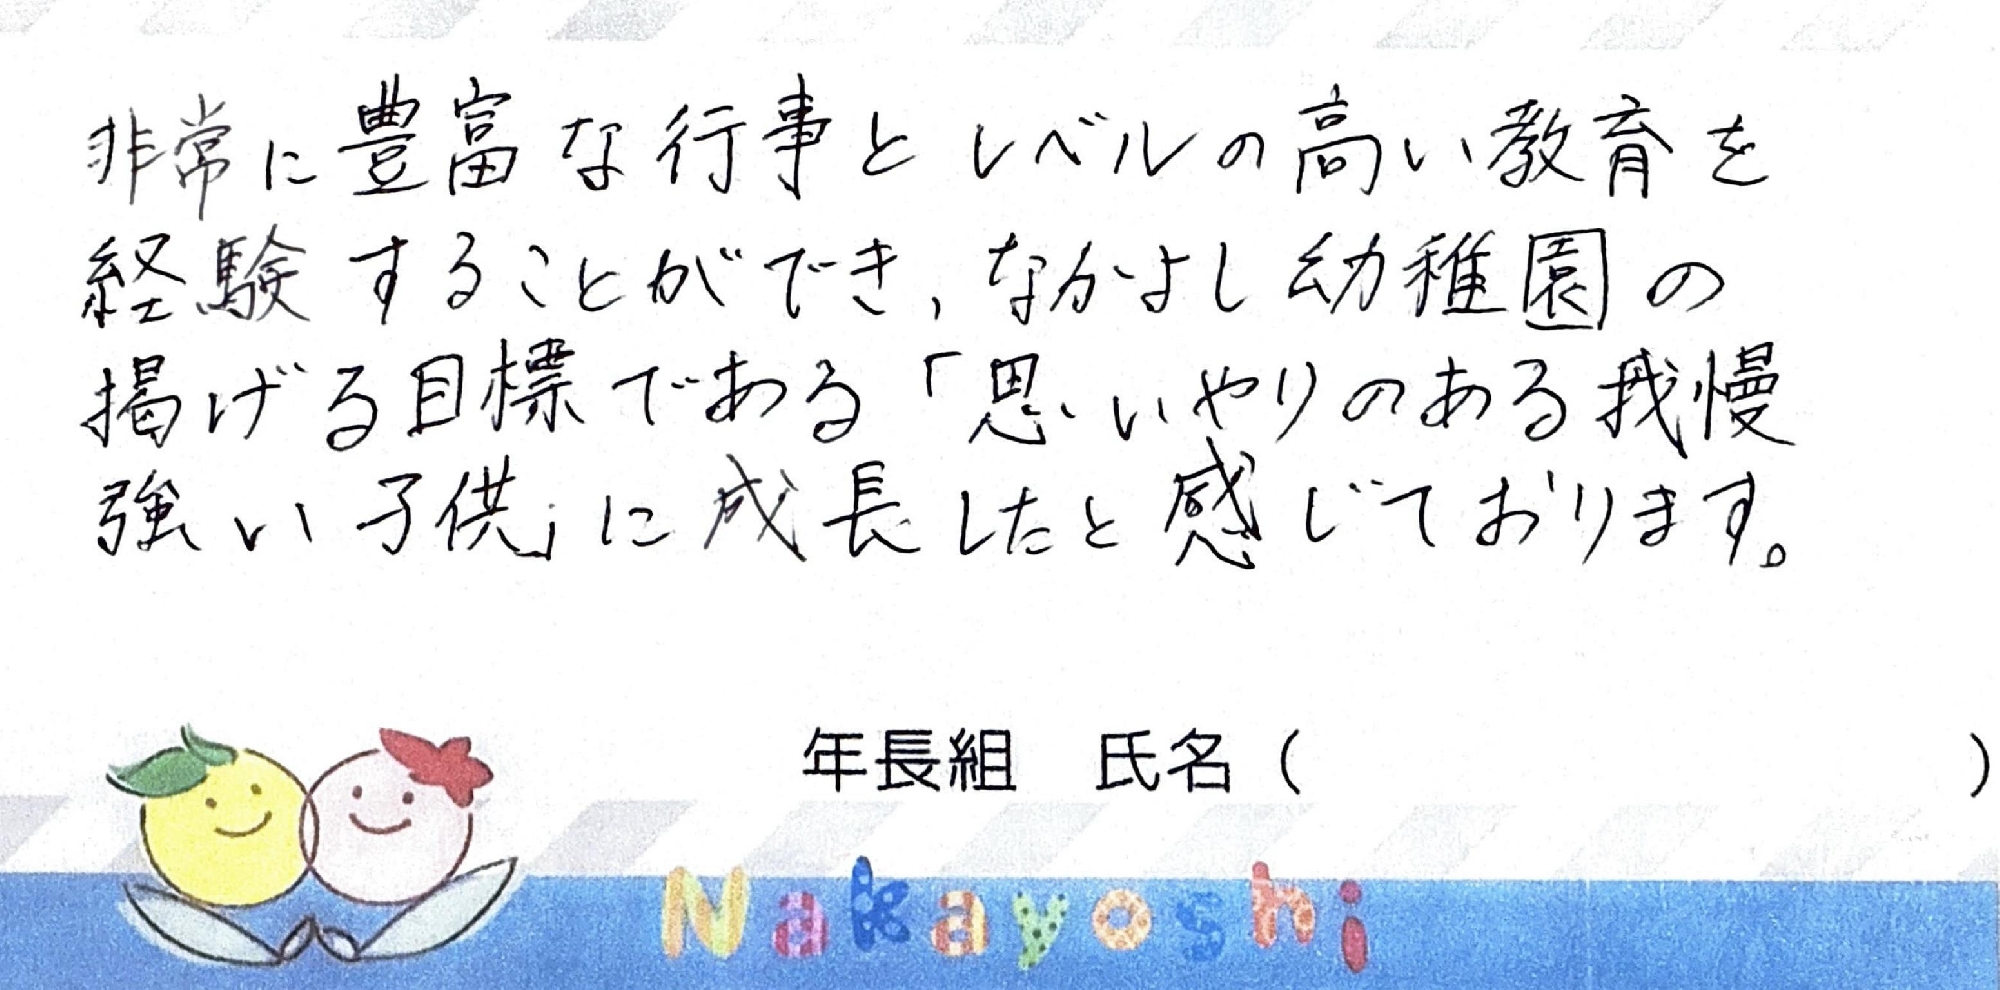 非常に豊富な行事とレベルの高い教育を
経験することができ,なかよし幼稚園の
掲げる目標である「思いやりのある我慢
強い子供」に成長したと感じております。
年長組　氏名(　　　　　　　　　)
Nakayoshi